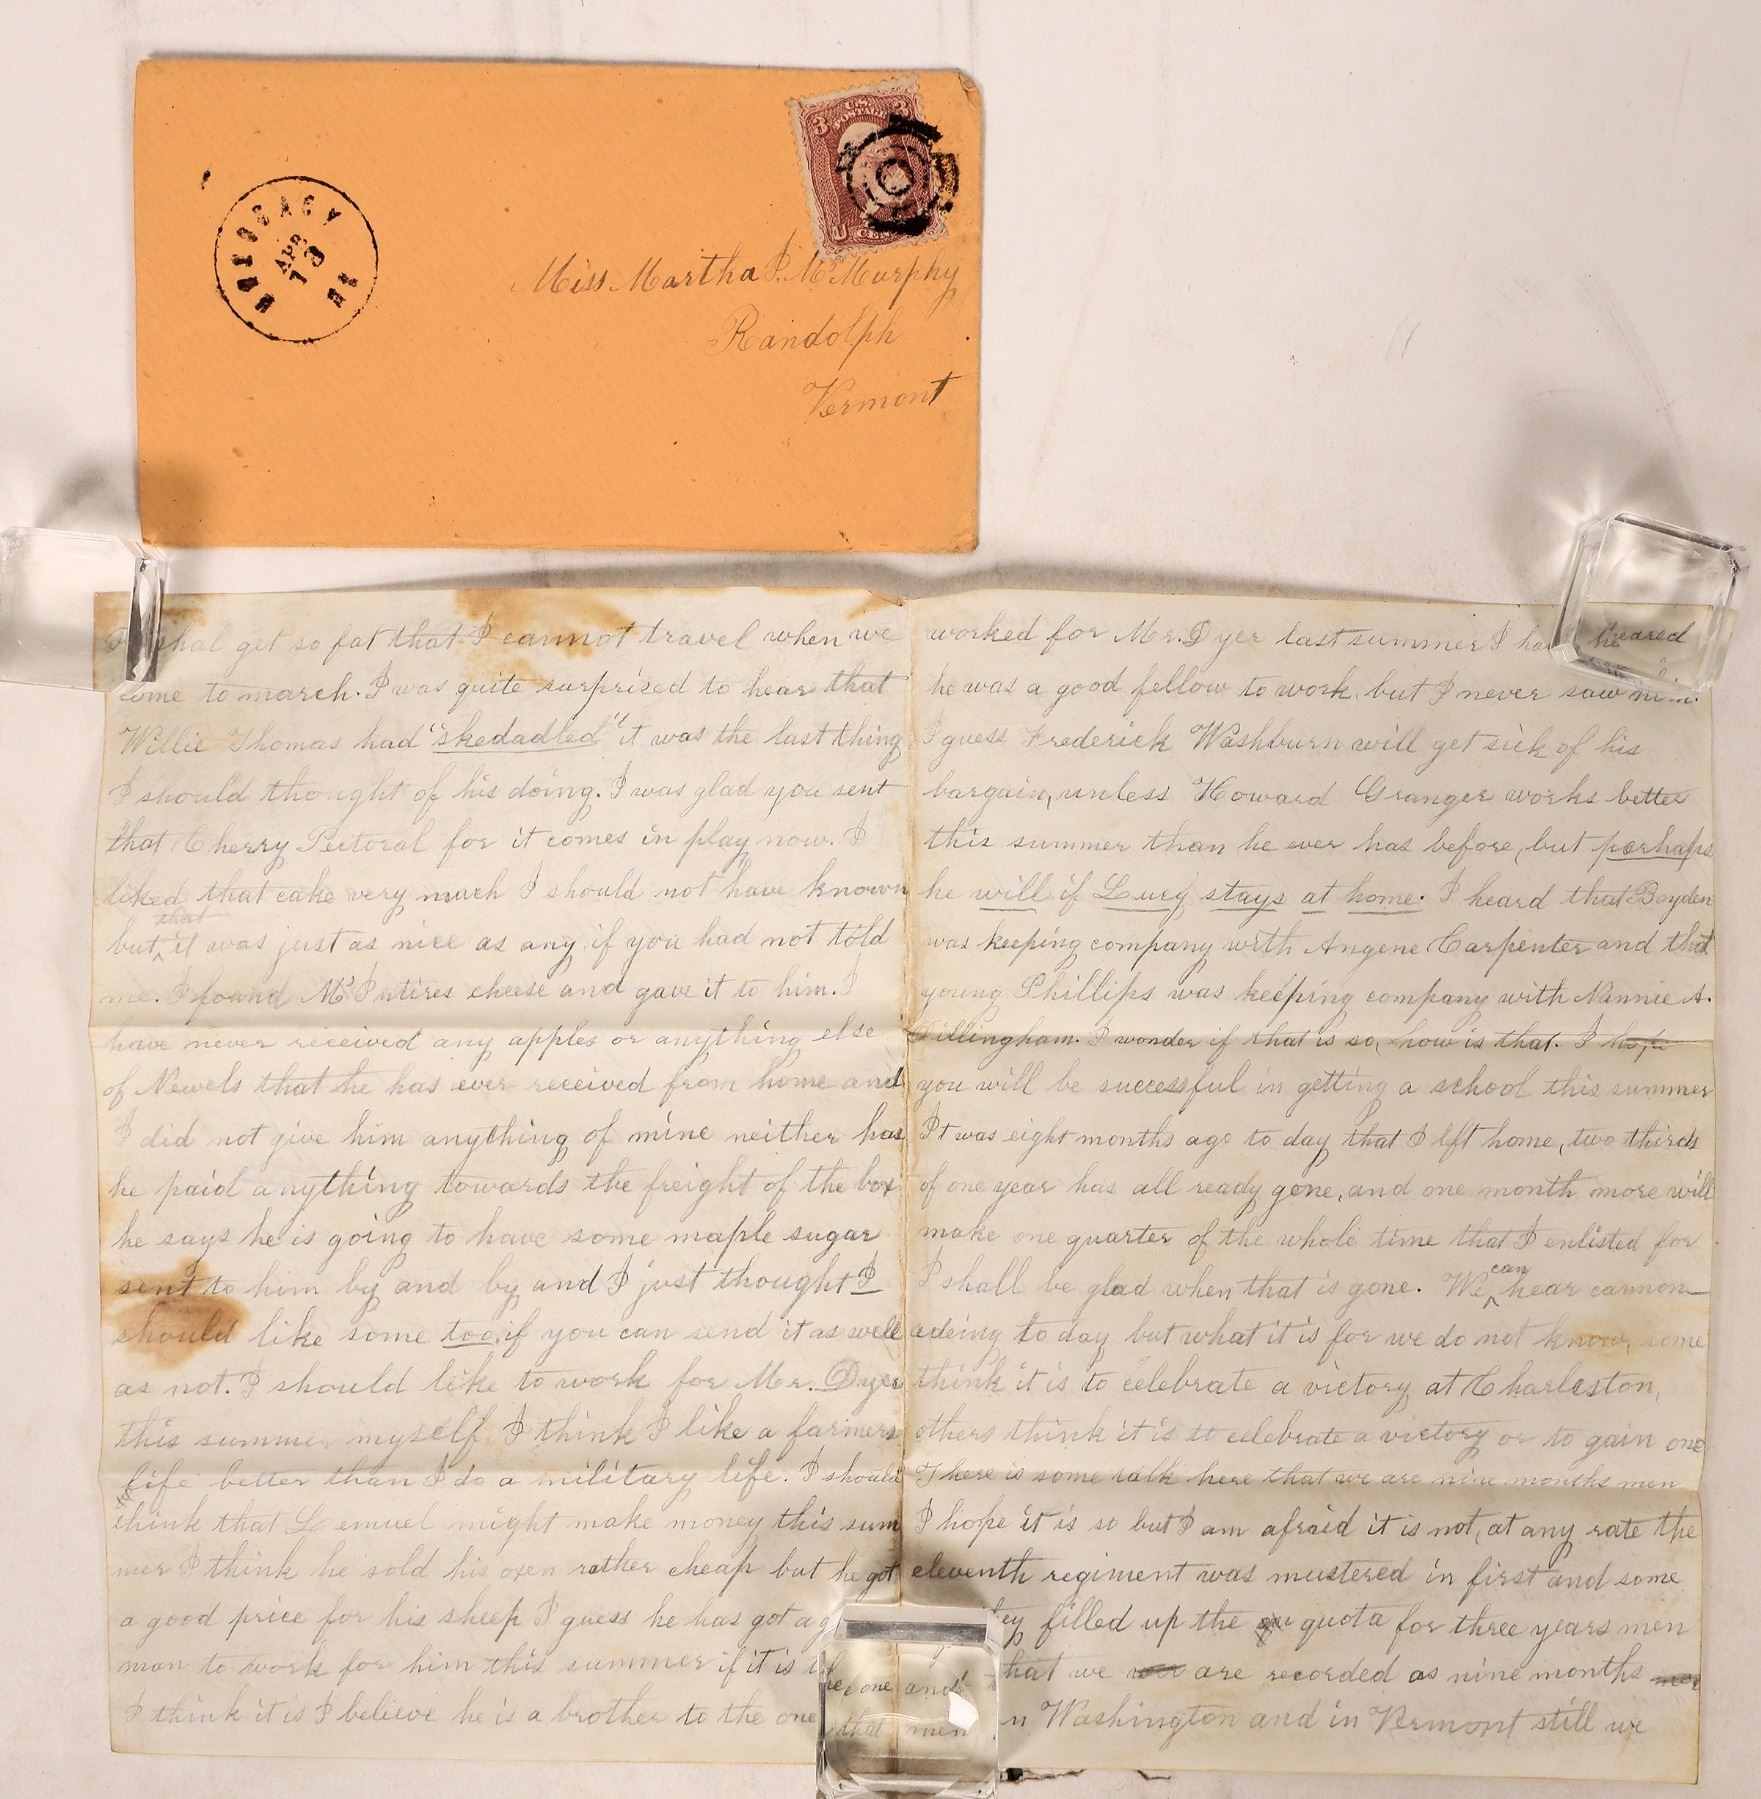 MONOCACY
APR
13
MD
U.S.
POSTAGE
3 3
CENTS
Miss Martha I. McMurphy
Randolph
Vermont
shal get so fat that I cannot travel when we
come to march. I was quite surprised to hear that
Willie Thomas had "skedadled" it was the last thing
I should thought of his doing. I was glad you sent
that Cherry Pectoral for it comes in play now. I
liked that cake very much I should not have known
that
but ^ it was just as nice as any, if you had not told
me. I found McIntires cheese and gave it to him. I
have never received any apples or anything else
of Newels that he has ever received from home and
I did not give him anything of mine neither has
he paid anything towards the freight of the box
he says he is going to have some maple sugar
sent to him by and by and I just thought I
should like some too, if you can send it as well
as not. I should like to work for Mr. Dyer
this summer myself I think I like a farmers
life better than I do a military life. I should
think that Lemuel might make money this sum
mer I think he sold his oxen rather cheap but he got
a good price for his sheep I guess he has got a g
man to work for him this summer if it is the one
I think it is I believe he is a brother to the one that
worked for Mr. Dyer last summer I ha heared
he was a good fellow to work, but I never saw him.
I guess Frederick Washburn will get sick of his
bargain, unless Howard Granger works better
this summer than he ever has before, but perhaps
he will if Lucy stays at home. I heard that Boyden
was keeping company with Angene Carpenter and that
young Phillips was keeping company with Nannie A.
Dillingham. I wonder if that is so, how is that. I hope
you will be successful in getting a school this summer
It was eight months ago to day that I left home, two thirds
of one year has all ready gone, and one month more will
make one quarter of the whole time that I enlisted for
I shall be glad when that is gone. We ^can hear cannon
adeing to day but what it is for we do not know, some
think it is to celebrate a victory at Charleston,
others think it is to celebrate a victory or to gain one
There is some talk here that we are nine months men
I hope it is so but I am afraid it is not, at any rate the
eleventh regiment was mustered in first and some
ey filled up the qu quota for three years men
and that we wer are recorded as nine months mer
men n Washington and in Vermont still we